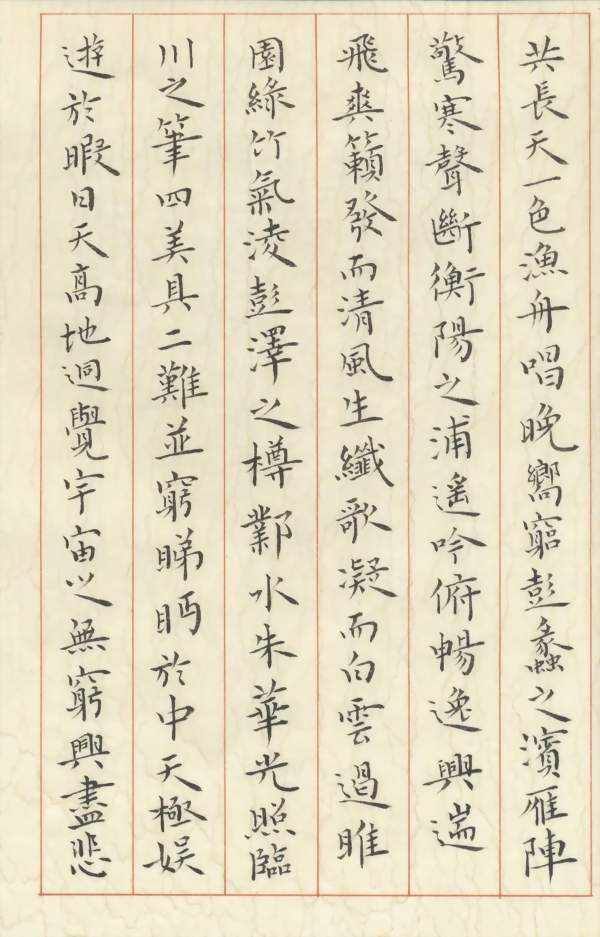 共長天一色漁舟唱晚嚮窮彭蠡之濱雁陣
驚寒聲斷衡陽之浦遙吟俯暢逸興遄
飛爽籟發而清風生纖歌凝而白雲遏睢
園綠竹氣淩彭澤之樽鄴水朱華光照臨
川之筆四美具二難並窮睇眄於中天極娱
遊於暇日天高地迥覺宇宙之無窮興盡悲